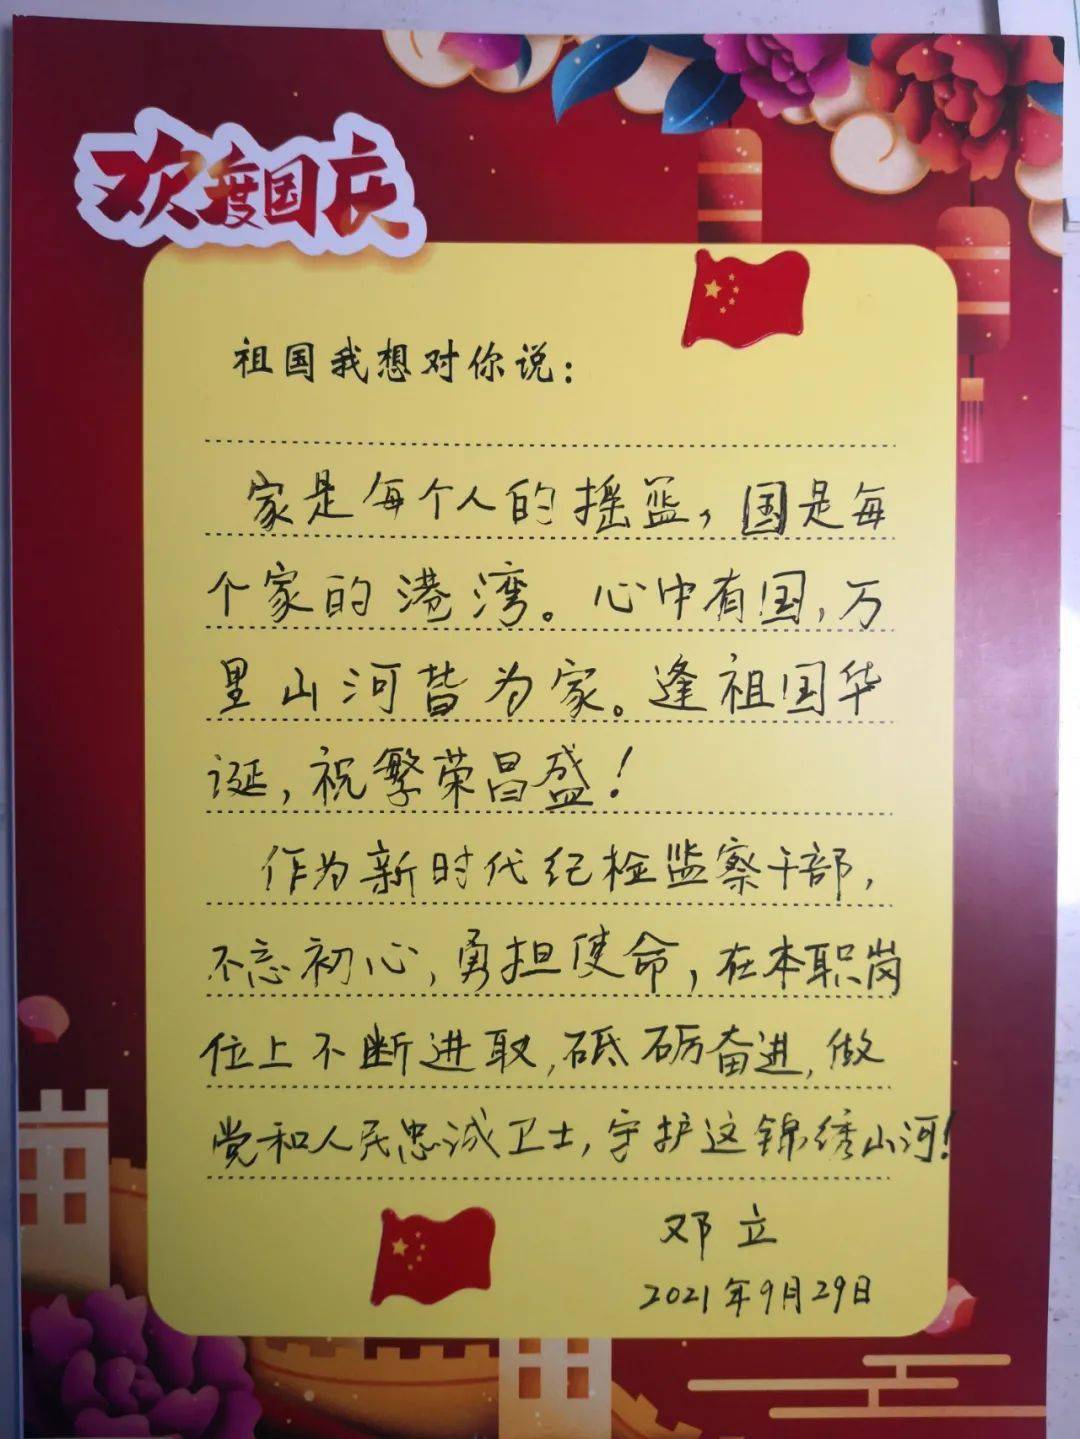 欢度国庆
祖国我想对你说：
家是每个人的摇篮，国是每
个家的港湾。心中有国，万
里山河皆为家。逢祖国华
诞，祝繁荣昌盛！
作为新时代纪检监察干部，
不忘初心，勇担使命，在本职岗
位上不断进取，砥砺奋进，做
党和人民忠诚卫士，守护这锦绣山河！
邓立
2021年9月29日